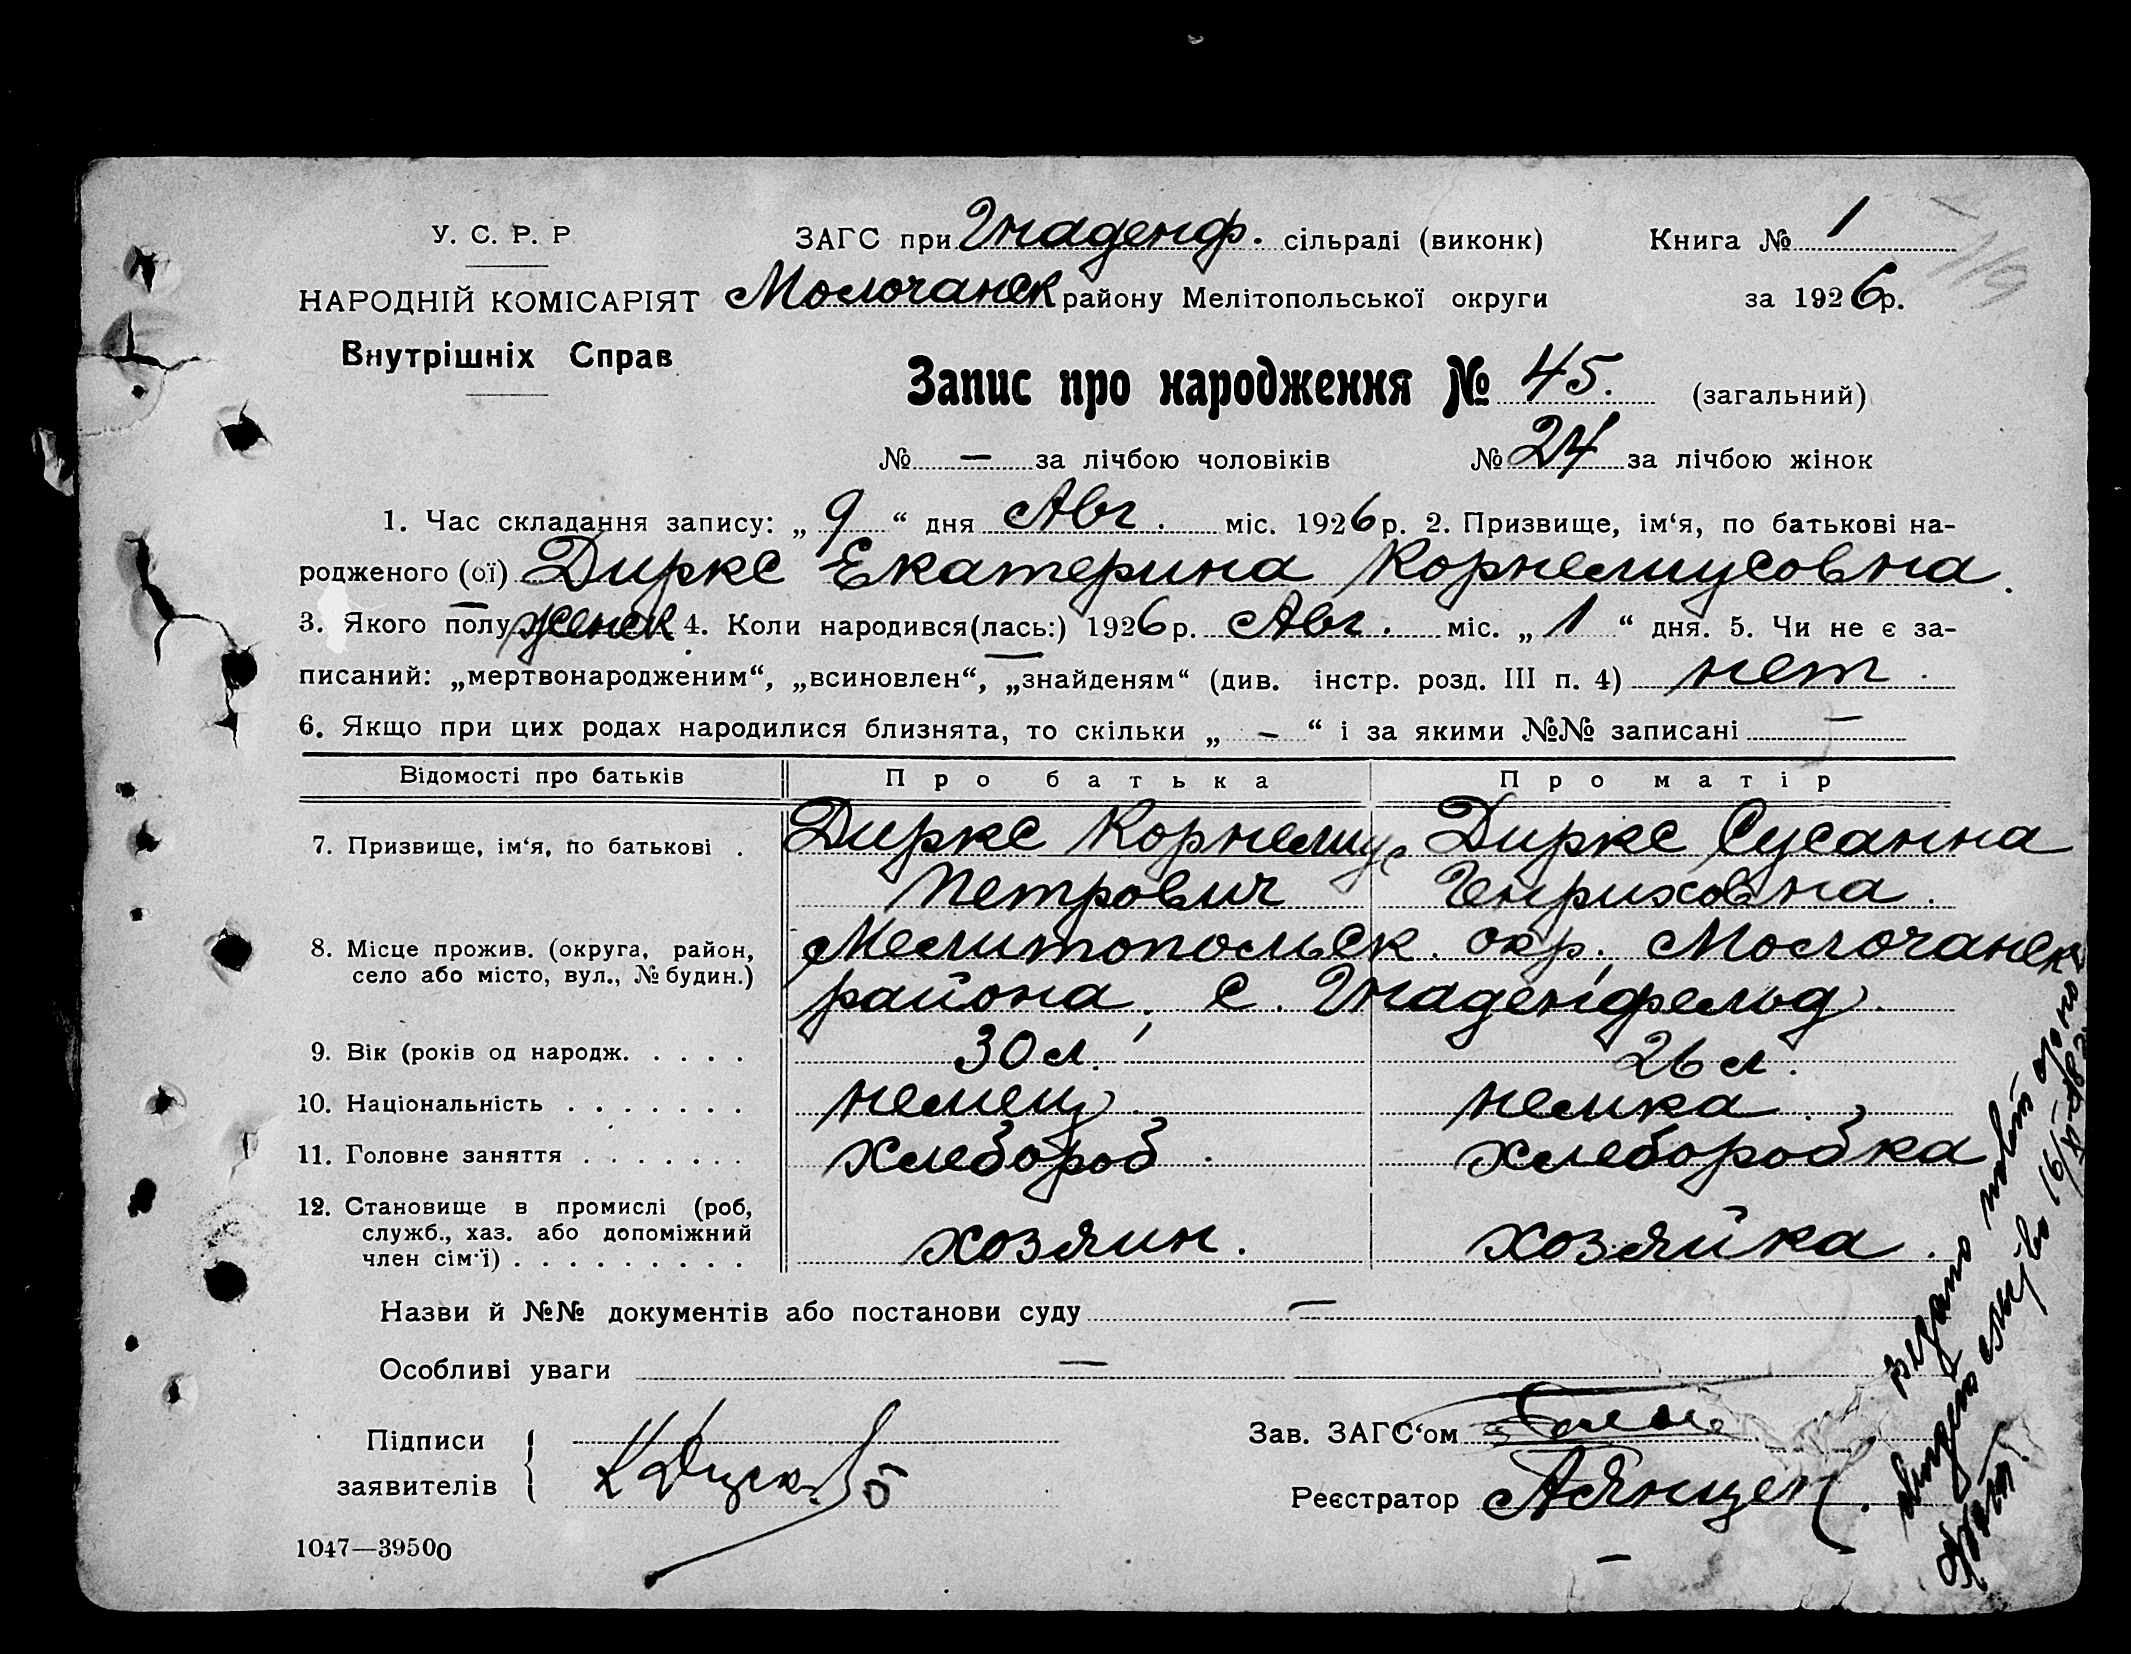 У. С. Р. Р
НАРОДНІЙ КОМІСАРІЯТ
Внутрішніх Справ
ЗАГС при Гнаденф. сільраді (виконк)
Молочанск району Мелітопольської округи
Книга № 1
за 1926р.
119
Запис про народження № 45. (загальний)
№ — за лічбою чоловіків № 24 за лічбою жінок
1. Час складання запису: „ 9 “ дня Авг. міс. 1926р. 2. Призвище, ім‘я, по батькові на-
родженого (ої) Диркс Екатерина Корнелиусовна.
3. Якого полу женск. 4. Коли народився(лась:) 1926р. Авг. міс. „ 1 “ дня. 5. Чи не є за-
писаний: „мертвонародженим“, „всиновлен“, „знайденям“ (див. інстр. розд. III п. 4) нет.
6. Якщо при цих родах народилися близнята, то скільки „ — “ і за якими №№ записані —
Відомості про батьків Про батька Про матір
7. Призвище, ім‘я, по батькові . Диркс Корнелиус Диркс Сусанна
Петрович Генриховна.
8. Місце прожив. (округа, район, Мелитопольск. окр. Молочанск
село або місто, вул., № будин.) района, с. Гнаденфельд.
9. Вік (років од народж. . . . . 30 л. 26 л.
10. Національність . . . . . . . немец. немка.
11. Головне заняття . . . . . . . хлебороб. хлеборобка
12. Становище в промислі (роб,
служб., хаз. або допоміжний
член сім‘ї) . . . . . . . . . хозяин. хозяйка.
Назви й №№ документів або постанови суду —
Особливі уваги —
Підписи
заявителів
Зав. ЗАГС‘ом
Реєстратор
1047—39500